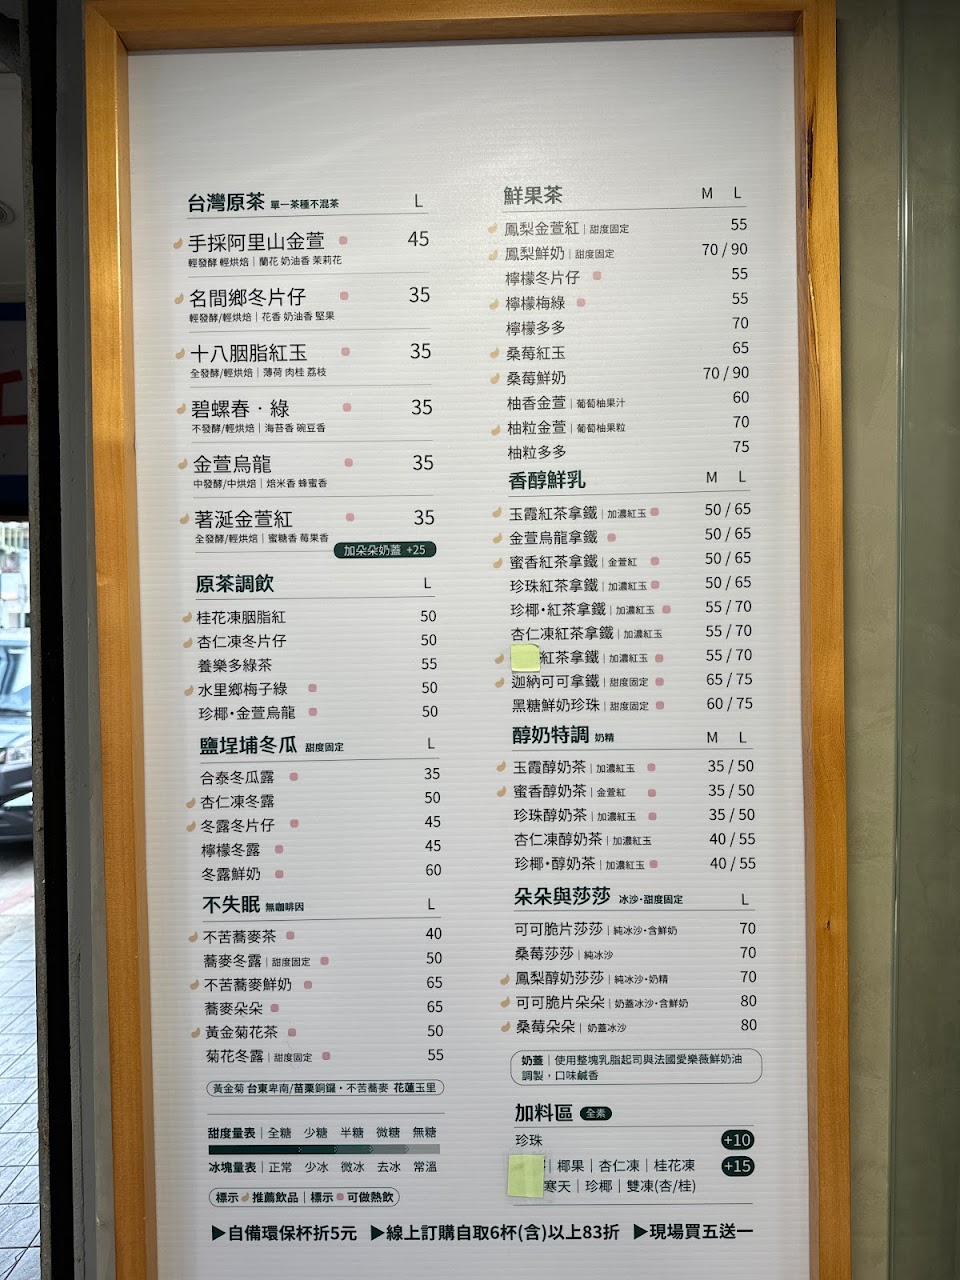 台灣原茶 單一茶種不混茶 L
手採阿里山金萱 45
輕發酵 輕烘焙｜蘭花 奶油香 茉莉花
名間鄉冬片仔 35
輕發酵/輕烘焙｜花香 奶油香 堅果
十八胭脂紅玉 35
全發酵/輕烘焙｜薄荷 肉桂 荔枝
碧螺春‧綠 35
不發酵/輕烘焙｜海苔香 碗豆香
金萱烏龍 35
中發酵/中烘焙｜焙米香 蜂蜜香
著涎金萱紅 35
全發酵/輕烘焙｜蜜糖香 莓果香
加朵朵奶蓋 +25
原茶調飲 L
桂花凍胭脂紅 50
杏仁凍冬片仔 50
養樂多綠茶 55
水里鄉梅子綠 50
珍椰•金萱烏龍 50
鹽埕埔冬瓜 甜度固定 L
合泰冬瓜露 35
杏仁凍冬露 50
冬露冬片仔 45
檸檬冬露 45
冬露鮮奶 60
不失眠 無咖啡因 L
不苦蕎麥茶 40
蕎麥冬露｜甜度固定 50
不苦蕎麥鮮奶 65
蕎麥朵朵 65
黃金菊花茶 50
菊花冬露｜甜度固定 55
黃金菊 台東卑南/苗栗銅鑼‧不苦蕎麥 花蓮玉里
甜度量表｜全糖 少糖 半糖 微糖 無糖
冰塊量表｜正常 少冰 微冰 去冰 常溫
標示 推薦飲品｜標示 可做熱飲
鮮果茶 M L
鳳梨金萱紅｜甜度固定 55
鳳梨鮮奶｜甜度固定 70 / 90
檸檬冬片仔 55
檸檬梅綠 55
檸檬多多 70
桑莓紅玉 65
桑莓鮮奶 70 / 90
柚香金萱｜葡萄柚果汁 60
柚粒金萱｜葡萄柚果粒 70
柚粒多多 75
香醇鮮乳 M L
玉霞紅茶拿鐵｜加濃紅玉 50 / 65
金萱烏龍拿鐵 50 / 65
蜜香紅茶拿鐵｜金萱紅 50 / 65
珍珠紅茶拿鐵｜加濃紅玉 50 / 65
珍椰•紅茶拿鐵｜加濃紅玉 55 / 70
杏仁凍紅茶拿鐵｜加濃紅玉 55 / 70
紅茶拿鐵｜加濃紅玉 55 / 70
迦納可可拿鐵｜甜度固定 65 / 75
黑糖鮮奶珍珠｜甜度固定 60 / 75
醇奶特調 奶精 M L
玉霞醇奶茶｜加濃紅玉 35 / 50
蜜香醇奶茶｜金萱紅 35 / 50
珍珠醇奶茶｜加濃紅玉 35 / 50
杏仁凍醇奶茶｜加濃紅玉 40 / 55
珍椰•醇奶茶｜加濃紅玉 40 / 55
朵朵與莎莎 冰沙‧甜度固定 L
可可脆片莎莎｜純冰沙‧含鮮奶 70
桑莓莎莎｜純冰沙 70
鳳梨醇奶莎莎｜純冰沙‧奶精 70
可可脆片朵朵｜奶蓋冰沙‧含鮮奶 80
桑莓朵朵｜奶蓋冰沙 80
奶蓋｜使用整塊乳脂起司與法國愛樂薇鮮奶油
調製，口味鹹香
加料區 全素
珍珠 +10
｜椰果｜杏仁凍｜桂花凍 +15
寒天｜珍椰｜雙凍(杏/桂)
▶自備環保杯折5元 ▶線上訂購自取6杯(含)以上83折 ▶現場買五送一